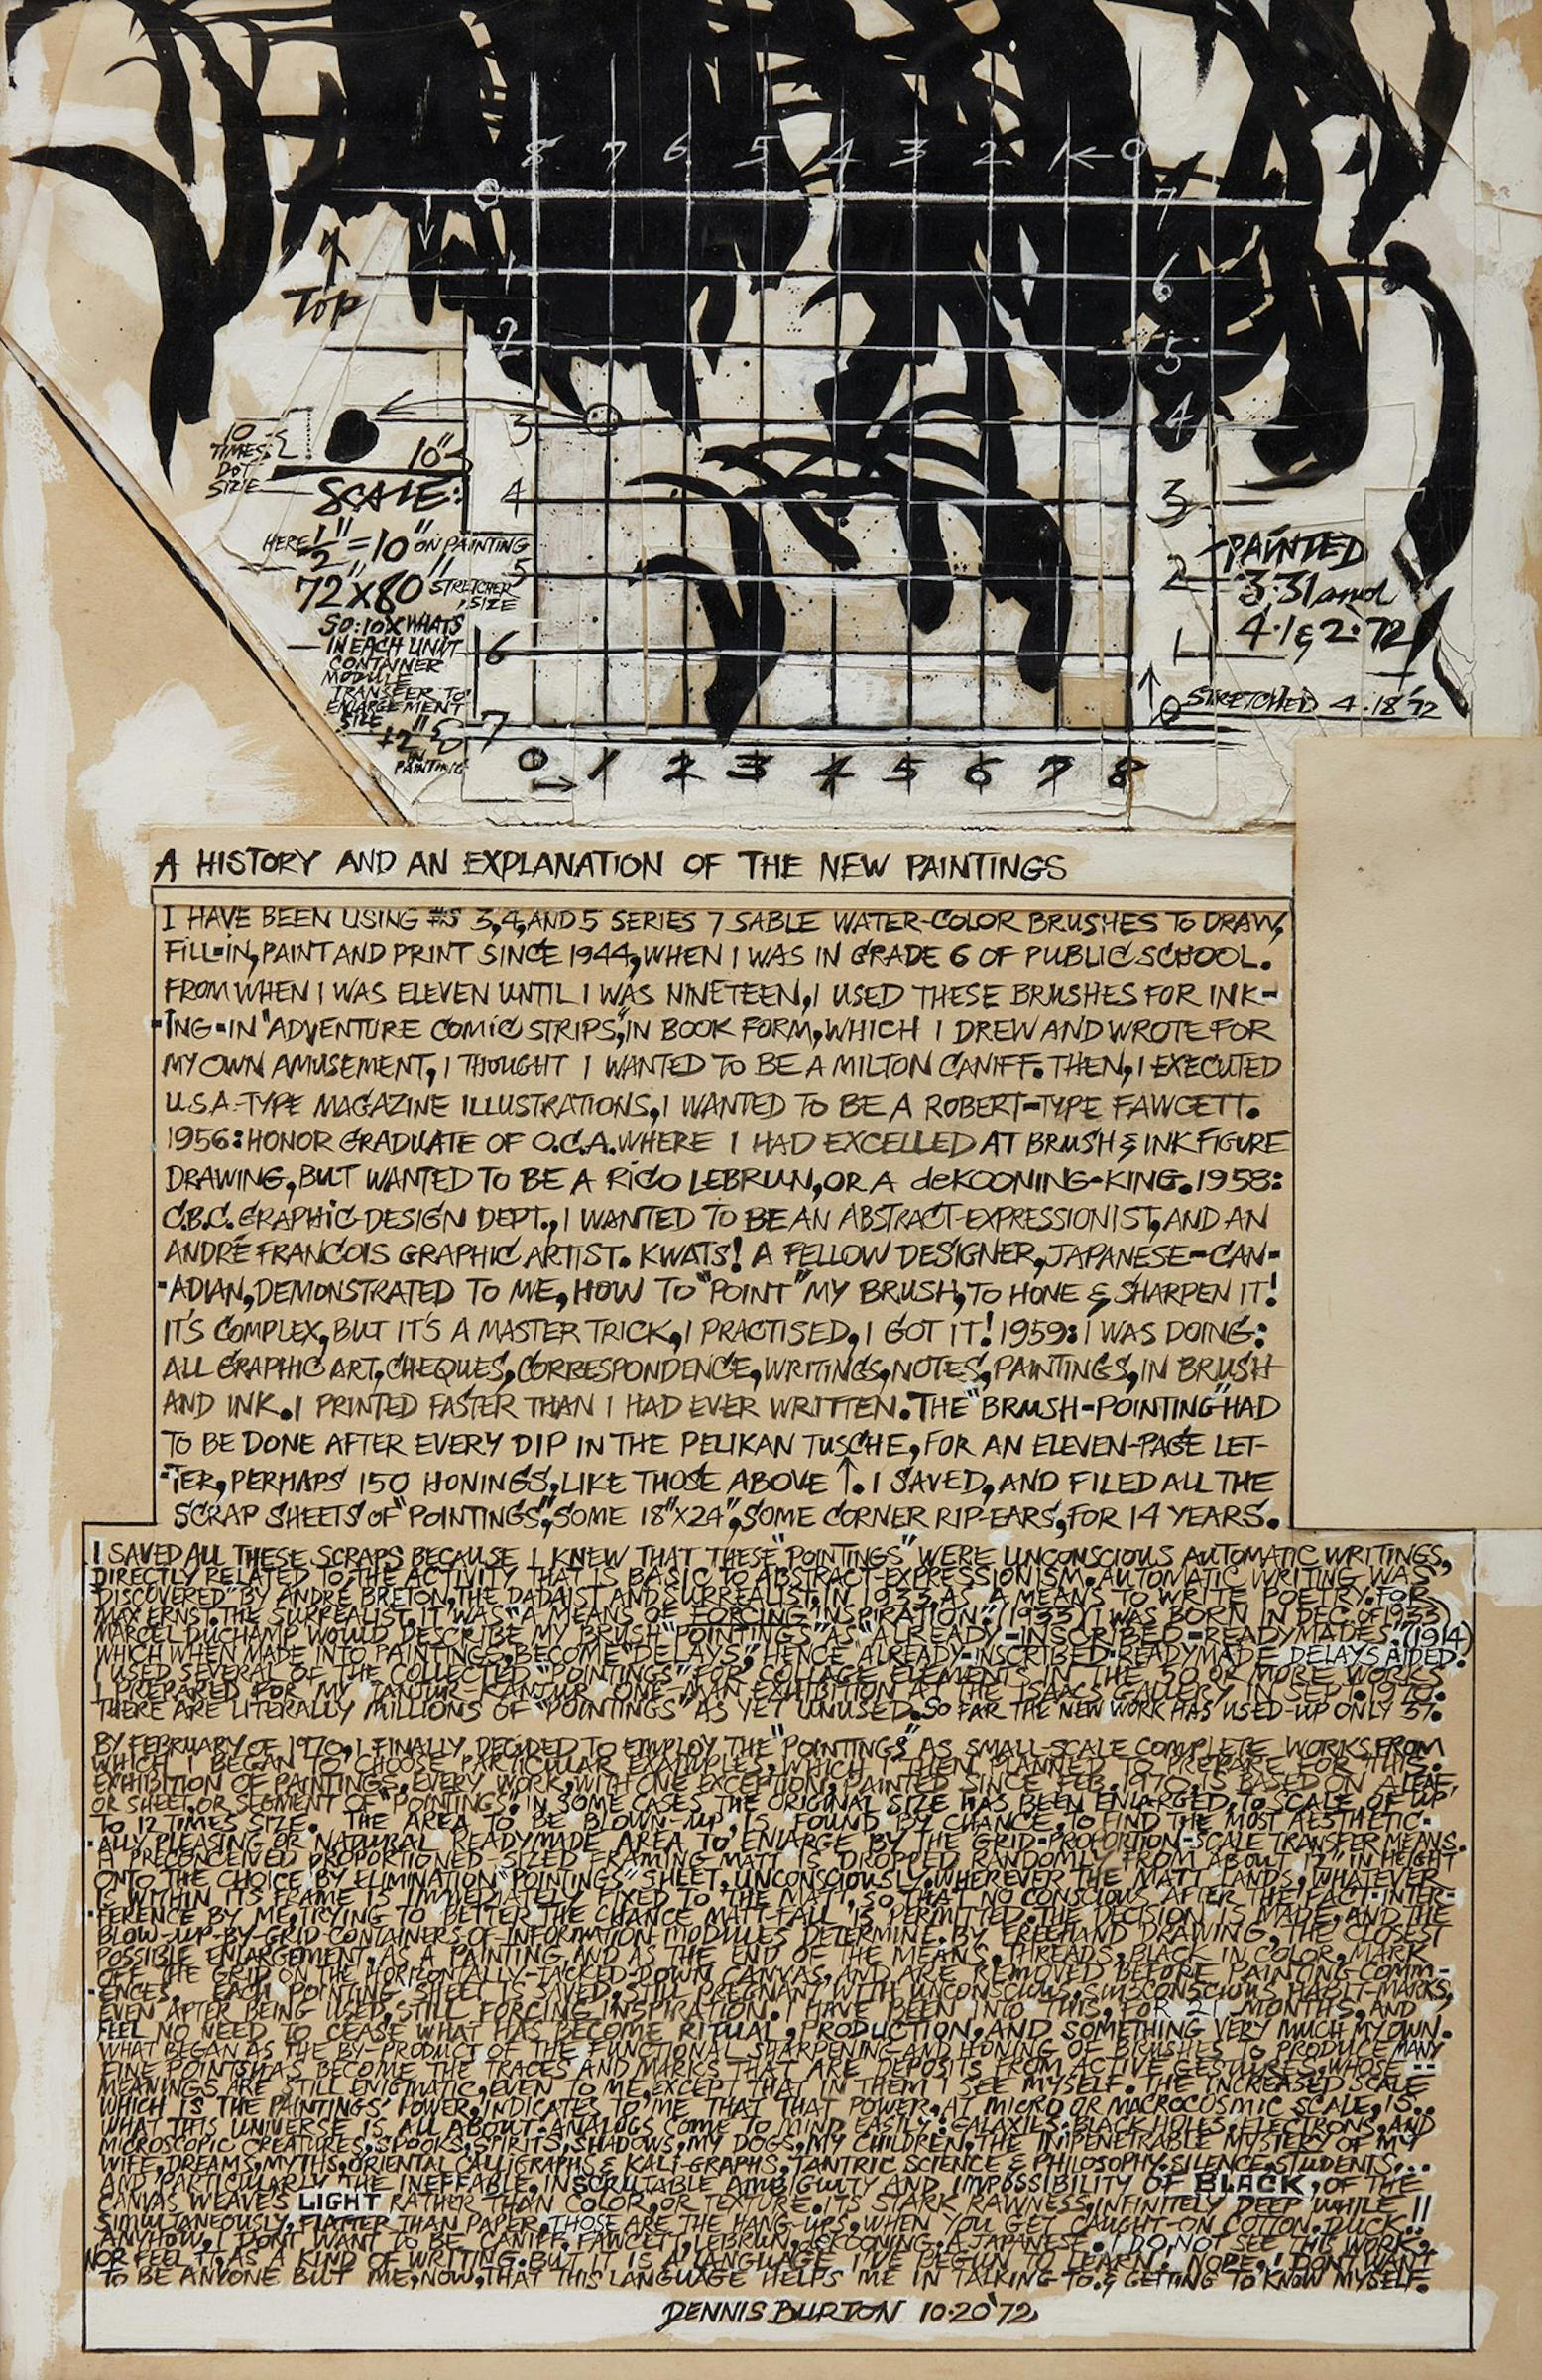 8 7 6 5 4 3 2 1 ← 0
0
7
1
6
TOP
2
5
3
4
10 TIMES DOT SIZE
10"
SCALE:
4
3
HERE 1/2" = 10" ON PAINTING
72" X 80" STRETCHER SIZE
5
2
PAINTED
3.31 and
4.1 & 2.'72
SO: 10 X WHATS
IN EACH UNIT
CONTAINER
MODULE
TRANSFER TO
ENLARGEMENT
SIZE
+2"
IN
PAINTING
6
1
7
0
STRETCHED 4.18'72
0 1 2 3 4 5 6 7 8
A HISTORY AND AN EXPLANATION OF THE NEW PAINTINGS
I HAVE BEEN USING #S 3,4,AND 5 SERIES 7 SABLE WATER-COLOR BRUSHES TO DRAW,
FILL-IN, PAINT AND PRINT SINCE 1944, WHEN I WAS IN GRADE 6 OF PUBLIC SCHOOL.
FROM WHEN I WAS ELEVEN UNTIL I WAS NINETEEN, I USED THESE BRUSHES FOR INK-
-ING-IN "ADVENTURE COMIC STRIPS," IN BOOK FORM, WHICH I DREW AND WROTE FOR
MY OWN AMUSEMENT, I THOUGHT I WANTED TO BE A MILTON CANIFF. THEN, I EXECUTED
U.S.A.-TYPE MAGAZINE ILLUSTRATIONS, I WANTED TO BE A ROBERT-TYPE FAWCETT.
1956: HONOR GRADUATE OF O.C.A. WHERE I HAD EXCELLED AT BRUSH & INK FIGURE
DRAWING, BUT WANTED TO BE A RICO LEBRUN, OR A deKOONING-KING. 1958:
C.B.C. GRAPHIC-DESIGN DEPT., I WANTED TO BE AN ABSTRACT-EXPRESSIONIST, AND AN
ANDRÉ FRANCOIS GRAPHIC ARTIST. KWATS! A FELLOW DESIGNER, JAPANESE-CAN-
-ADIAN, DEMONSTRATED TO ME, HOW TO "POINT" MY BRUSH, TO HONE & SHARPEN IT!
IT'S COMPLEX, BUT IT'S A MASTER TRICK, I PRACTISED, I GOT IT! 1959: I WAS DOING:
ALL GRAPHIC ART, CHEQUES, CORRESPONDENCE, WRITINGS, NOTES, PAINTINGS, IN BRUSH
AND INK. I PRINTED FASTER THAN I HAD EVER WRITTEN. THE "BRUSH-POINTING" HAD
TO BE DONE AFTER EVERY DIP IN THE PELIKAN TUSCHE, FOR AN ELEVEN-PAGE LET-
-TER, PERHAPS 150 HONINGS, LIKE THOSE ABOVE ↑. I SAVED, AND FILED ALL THE
SCRAP SHEETS OF "POINTINGS", SOME 18"X24", SOME CORNER RIP-EARS, FOR 14 YEARS.
I SAVED ALL THESE SCRAPS BECAUSE I KNEW THAT THESE "POINTINGS" WERE UNCONSCIOUS AUTOMATIC WRITINGS,
DIRECTLY RELATED TO THE ACTIVITY THAT IS BASIC TO ABSTRACT-EXPRESSIONISM. AUTOMATIC WRITING WAS
"DISCOVERED" BY ANDRÉ BRETON, THE DADAIST AND SURREALIST, IN 1933, AS "A MEANS TO WRITE POETRY. FOR
MAX ERNST, THE SURREALIST, IT WAS "A MEANS OF FORCING INSPIRATION." (1933) (I WAS BORN IN DEC. OF 1933)
MARCEL DUCHAMP WOULD DESCRIBE MY BRUSH "POINTINGS" AS "ALREADY-INSCRIBED-READYMADES." (1914)
WHICH WHEN MADE INTO PAINTINGS, BECOME "DELAYS", HENCE ALREADY-INSCRIBED-READYMADE DELAYS AIDED!
I USED SEVERAL OF THE COLLECTED "POINTINGS" FOR COLLAGE ELEMENTS IN THE 50 OR MORE WORKS
I PREPARED FOR MY "TANJUR-KANJUR" ONE-MAN EXHIBITION AT THE ISAACS GALLERY IN SEPT. 1970.
THERE ARE LITERALLY MILLIONS OF "POINTINGS" AS YET UNUSED. SO FAR THE NEW WORK HAS USED-UP ONLY 37.
BY FEBRUARY OF 1970, I FINALLY DECIDED TO EMPLOY THE "POINTINGS" AS SMALL-SCALE COMPLETE WORKS FROM
WHICH I BEGAN TO CHOOSE PARTICULAR EXAMPLES, WHICH I THEN PLANNED TO PREPARE FOR THIS
EXHIBITION OF PAINTINGS. EVERY WORK, WITH ONE EXCEPTION, PAINTED SINCE FEB. 1970, IS BASED ON A LEAF,
OR SHEET, OR SEGMENT OF "POINTINGS". IN SOME CASES THE ORIGINAL SIZE HAS BEEN ENLARGED, TO SCALE, OF UP
TO 12 TIMES SIZE. THE AREA TO BE BLOWN-UP, IS FOUND BY CHANCE, TO FIND THE MOST AESTHETIC-
-ALLY PLEASING OR NATURAL READYMADE AREA TO ENLARGE BY THE GRID-PROPORTION-SCALE TRANSFER MEANS.
A PRECONCEIVED PROPORTIONED-SIZED FRAMING MATT IS DROPPED RANDOMLY FROM ABOUT 12" IN HEIGHT
ONTO THE CHOICE BY ELIMINATION "POINTINGS" SHEET, UNCONSCIOUSLY, WHEREVER THE MATT LANDS, WHATEVER
IS WITHIN ITS FRAME IS IMMEDIATELY FIXED TO THE MATT, SO THAT NO CONSCIOUS AFTER THE FACT-INTER-
-FERENCE BY ME, TRYING TO BETTER THE CHANCE MATT-FALL IS PERMITTED. THE DECISION IS MADE, AND THE
BLOW-UP-BY-GRID-CONTAINERS-OF-INFORMATION-MODULES DETERMINE, BY FREEHAND DRAWING, THE CLOSEST
POSSIBLE ENLARGEMENT, AS A PAINTING, AND AS THE END OF THE MEANS. THREADS, BLACK IN COLOR, MARK
OFF THE GRID ON THE HORIZONTALLY-TACKED-DOWN CANVAS, AND ARE REMOVED BEFORE PAINTING COMM-
-ENCES. EACH POINTING SHEET IS SAVED, STILL PREGNANT WITH UNCONSCIOUS, SUBCONSCIOUS HABIT-MARKS,
EVEN AFTER BEING USED, STILL FORCING INSPIRATION. I HAVE BEEN INTO THIS, FOR 21 MONTHS, AND
FEEL NO NEED TO CEASE WHAT HAS BECOME RITUAL, PRODUCTION, AND SOMETHING VERY MUCH MY OWN.
WHAT BEGAN AS THE BY-PRODUCT OF THE FUNCTIONAL SHARPENING AND HONING OF BRUSHES TO PRODUCE MANY
FINE POINTS HAS BECOME THE TRACES AND MARKS THAT ARE DEPOSITS FROM ACTIVE GESTURES, WHOSE --
MEANINGS ARE STILL ENIGMATIC, EVEN TO ME, EXCEPT THAT IN THEM I SEE MYSELF. THE INCREASED SCALE
WHICH IS THE PAINTINGS' POWER, INDICATES TO ME THAT THAT POWER, AT MICRO OR MACROCOSMIC SCALE, IS..
WHAT THIS UNIVERSE IS ALL ABOUT. ANALOGS COME TO MIND EASILY: GALAXIES, BLACK HOLES, ELECTRONS, AND
MICROSCOPIC CREATURES, SPOOKS, SPIRITS, SHADOWS, MY DOGS, MY CHILDREN, THE INPENETRABLE MYSTERY OF MY
WIFE, DREAMS, MYTHS, ORIENTAL CALLIGRAPHS & KALI-GRAPHS, TANTRIC SCIENCE & PHILOSOPHY, SILENCE, STUDENTS...
AND PARTICULARLY THE INEFFABLE, INSCRUTABLE AMBIGUITY AND IMPOSSIBILITY OF BLACK, OF THE
CANVAS WEAVE'S LIGHT RATHER THAN COLOR, OR TEXTURE. ITS STARK RAWNESS, INFINITELY DEEP WHILE
SIMULTANEOUSLY, FLATTER THAN PAPER, THOSE ARE THE HANG-UPS, WHEN YOU GET CAUGHT-ON COTTON DUCK!!
ANYHOW, I DON'T WANT TO BE CANIFF, FAWCETT, LEBRUN, deKOONING, A JAPANESE. I DO NOT SEE THIS WORK,
NOR FEEL IT, AS A KIND OF WRITING. BUT IT IS A LANGUAGE I'VE BEGUN TO LEARN. NOPE, I DON'T WANT
TO BE ANYONE BUT ME, NOW, THAT THIS LANGUAGE HELPS ME IN TALKING TO, & GETTING TO KNOW MYSELF.
DENNIS BURTON 10.20'72